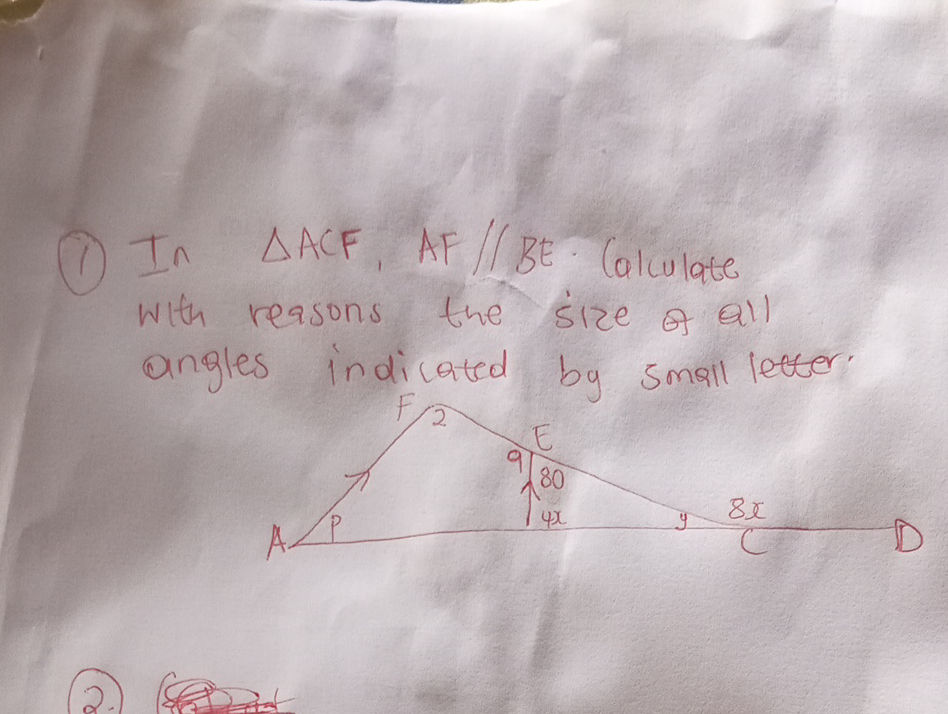 ① In ΔACF, AF // BE. Calculate
with reasons the size of all
angles indicated by small letter.
F 2 E
q 80
A P 4x y 8x C D
2.